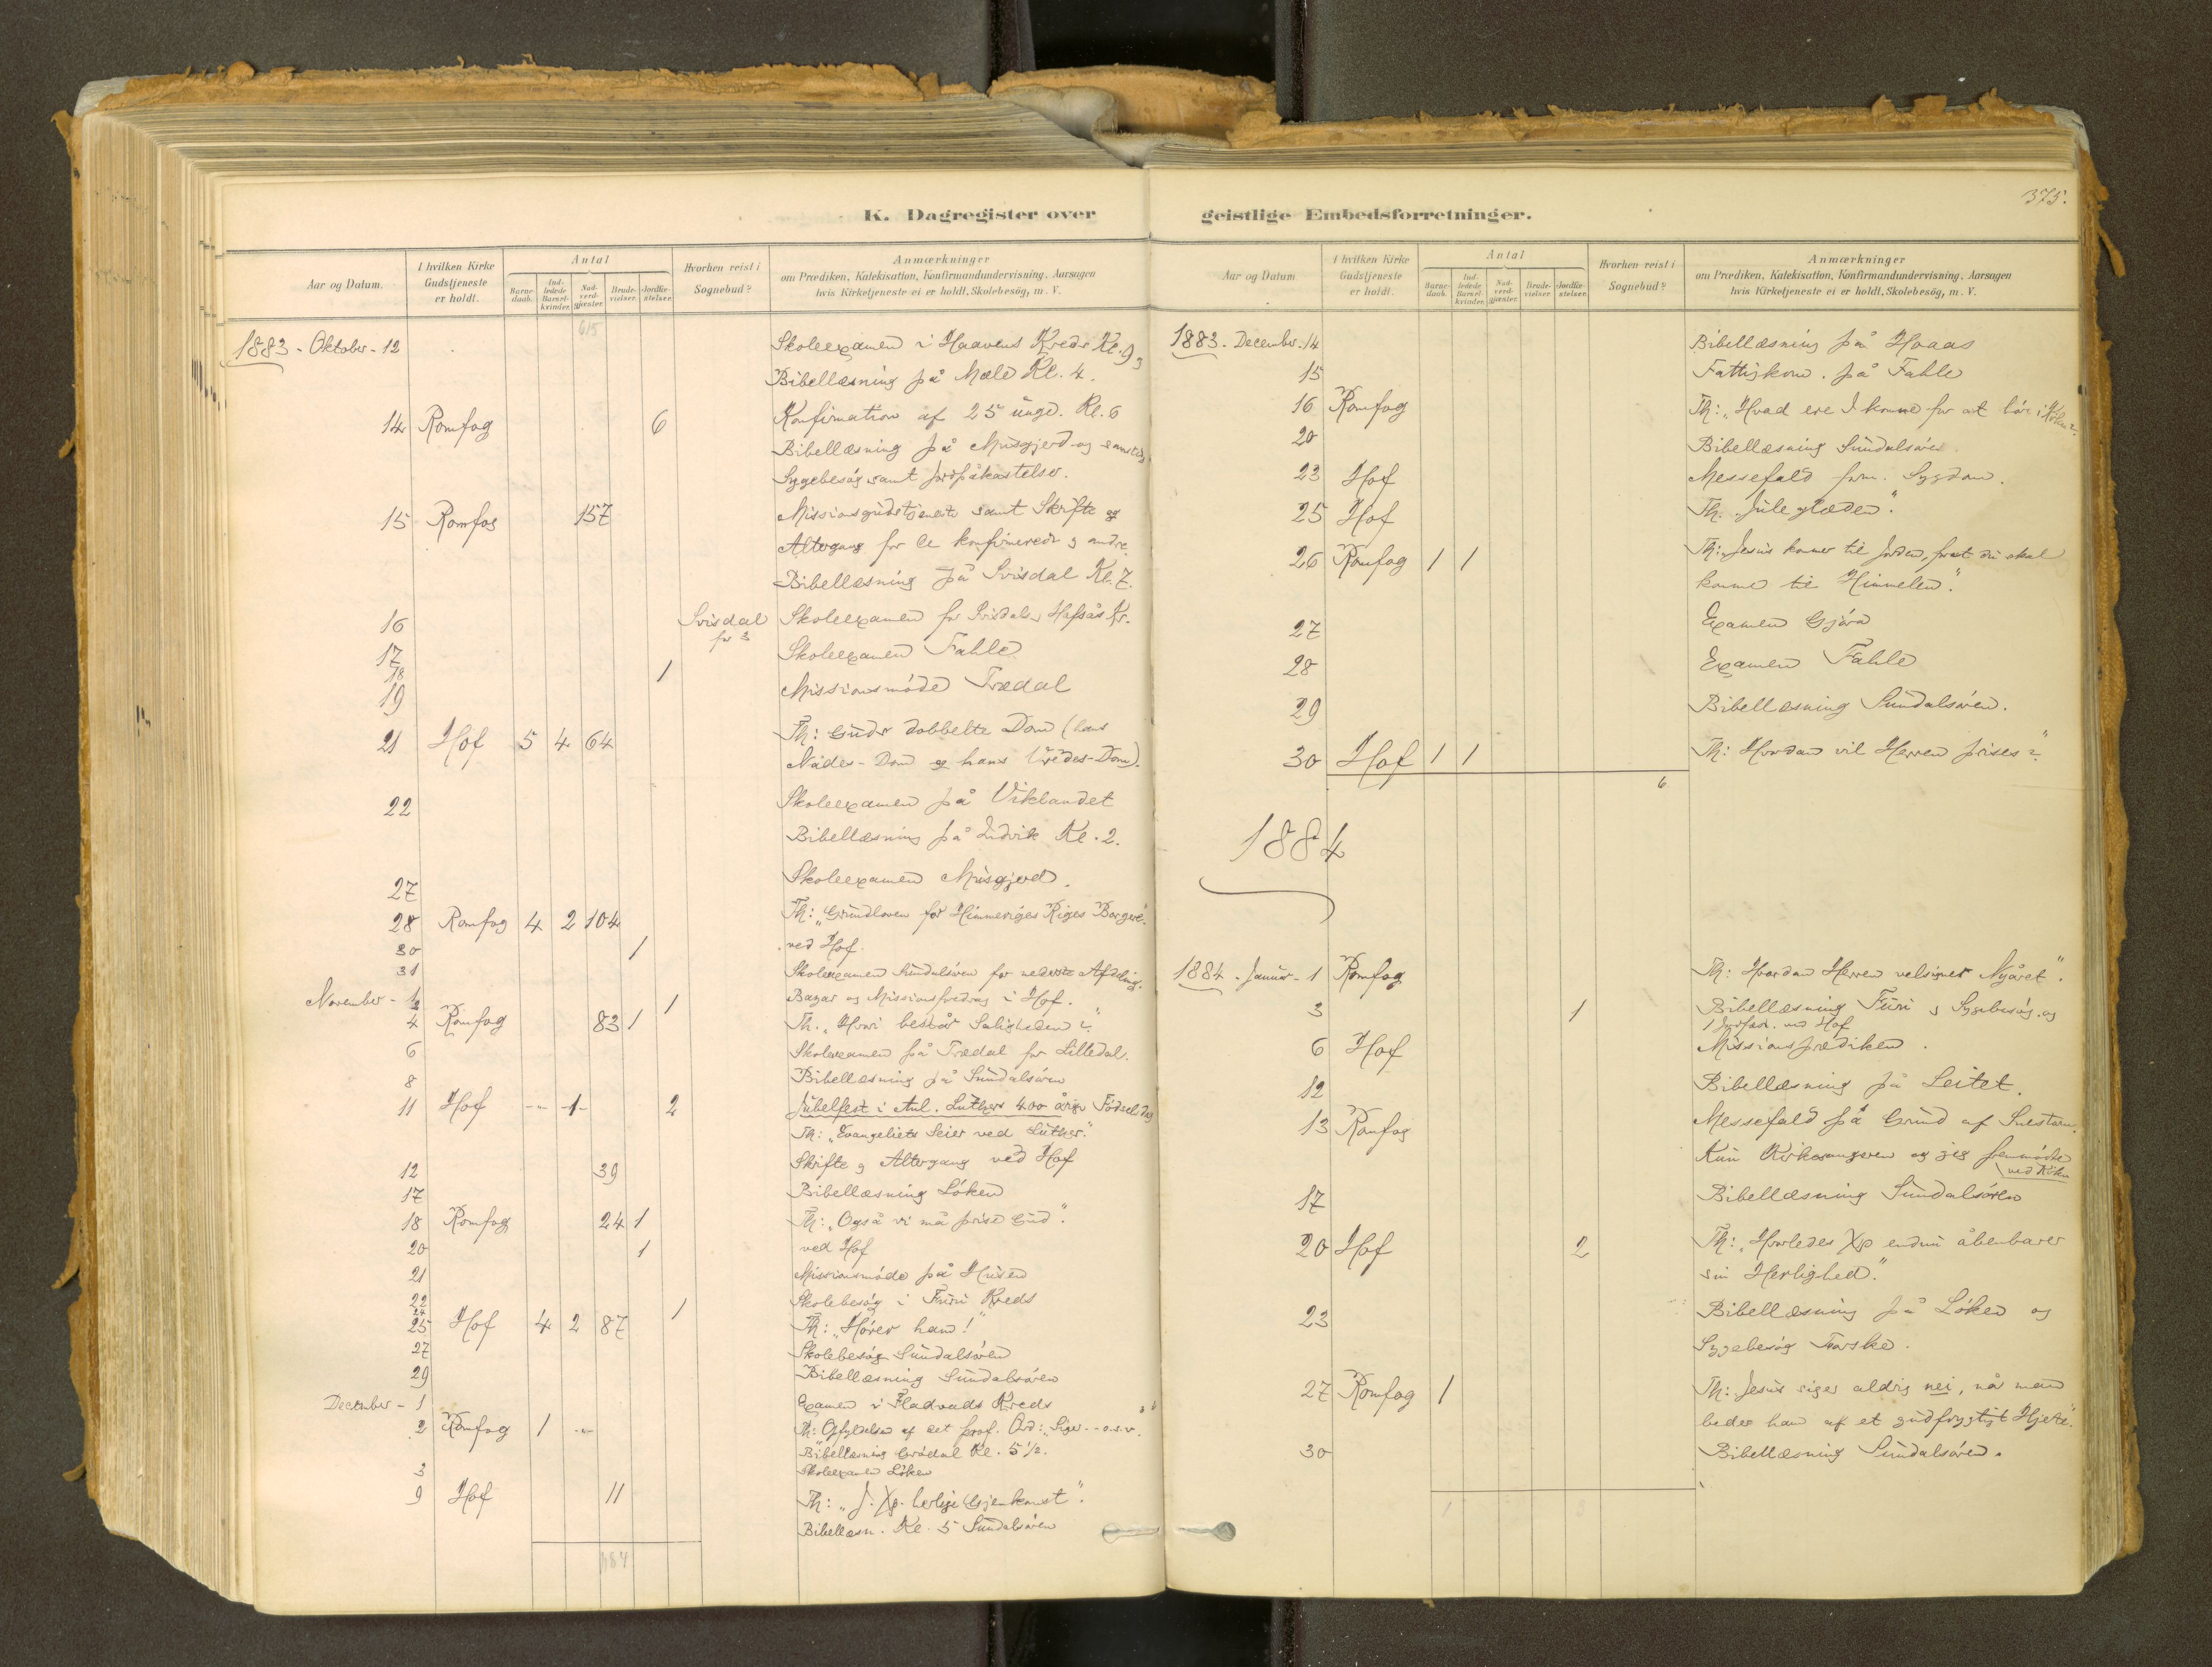 K. Dagregister over
Aar og Datum.
I hvilken Kirke Gudstjeneste er holdt.
Antal
Barnedaab.
Indledede Barselkvinder.
Nadverdgjæster.
Brudevielser.
Jordfæstelser.
Hvorhen reist i Sognebud?
Anmærkninger
om Prædiken, Katekisation, Konfirmandundervisning, Aarsagen
hvis Kirketjeneste ei er holdt, Skolebesög, m. V.
615
1883 - Oktober - 12 Skoleexamen i Haavens Kreds Kl. 9
Bibellæsning på Mæle Kl. 4.
14 Romfog 6 Konfirmation af 25 unge. Kl. 6
Bibellæsning på Musgjerd og samsteds
Sygebesøg samt jordpåkastelse.
15 Romfog 157 Missionsgudstjeneste samt Skrifte og
Altergang for de konfirmerede og andre.
Bibellæsning på Svisdal Kl. 7.
16 Svisdal for 3 Skoleexamen for Svisdal og Hafsås Kr.
17 Skoleexamen Fahle
18 1
19 Missionsmøde Trædal
21 Hof 5 4 64 Th: Guds dobbelte Dom (hans
Nådes-Dom og hans Vredes-Dom).
22 Skoleexamen på Viklandet
Bibellæsning på Kl. 2.
27 Skoleexamen Musgjerd.
28 Romfog 4 2 104 Th: "Grundloven for Himmeriges Riges Borgere".
30 1 ved Hof.
31 Skoleexamen Sundalsøren for nederste Afdeling.
November - 1 Bazar og Missionsforedrag i Hof.
2 1
4 Romfog 83 1 Th. "Hvori består Saligheden?"
6 Skoleexamen på Trædal for Lilledal.
8 Bibellæsning på Sundalsøren
11 Hof - - 1 - 2 Jubelfest i Anl. Luthers 400 årige Fødselsdag
Th: "Evangeliets Seier ved Luther."
12 39 Skrifte og Altergang ved Hof
17 Bibellæsning Løken
18 Romfog 24 1 Th: "Også vi må prise Gud".
20 1 ved Hof
21 Missionsmøde på Husen
22 Skolebesøg i Furu Kreds
24 1
25 Hof 4 2 87 Th: "Hører ham!"
27 Skolebesøg Sundalsøren
29 Bibellæsning Sundalsøren
December - 1 Examen i Fladvads Kreds
2 Romfog 1 - - Th: Opfyldelsen af det prof. Ord: "Siger - o.s.v."
Bibellæsning Grødal Kl. 5 1/2.
3 Skoleexamen Løken
9 Hof 11 Th: "J. Xp. herlige Gjenkomst".
Bibellæsn. Kl. 5 Sundalsøren
geistlige Embedsforretninger.
375.
Aar og Datum
I hvilken Kirke Gudstjeneste er holdt.
Antal
Barnedaab.
Indledede Barselkvinder.
Nadverdgjæster.
Brudevielser.
Jordfæstelser.
Hvorhen reist i Sognebud?
Anmærkninger
om Prædiken, Katekisation, Konfirmandundervisning, Aarsagen
hvis Kirketjeneste ei er holdt, Skolebesög, m. V.
1883 - December - 14 Bibellæsning på Hoaas
15 Fattigkom. på Fahle
16 Romfog Th: "Hvad ere I komne for at høre i
20 Bibellæsning Sundalsøren
23 Hof Messefald form. Sygdom.
25 Hof Th. "Juleglæden".
26 Romfog 1 1 Th: "Jesus kommer til Jorden, forat du skal
komme til Himmelen".
27 Examen Gjøra
28 Examen Fahle
29 Bibellæsning Sundalsøren.
30 Hof 1 1 Th: Hvordan vil Herren prises?"
6
1884
1884 - Januar - 1 Romfog Th: Hvordan Herren velsigner Nyåret".
3 1 Bibellæsning Furu og Sygebesøg. og
1 Jordfæst. ved Hof
6 Hof Missionsprædiken.
12 Bibellæsning på Leitet.
13 Romfog Messefald på Grund af Snestorm.
Kun Kirkesangeren og jeg fremmødte
ved Kirken
17 Bibellæsning Sundalsøren
20 Hof 2 Th: "Hvorledes Xp endnu åbenbarer
sin Herlighed."
23 Bibellæsning på Løken og
Sygebesøg Torske.
27 Romfog 1 Th: Jesus siger aldrig nei, når man
beder ham af et gudfrygtigt Hjerte."
30 Bibellæsning Sundalsøren.